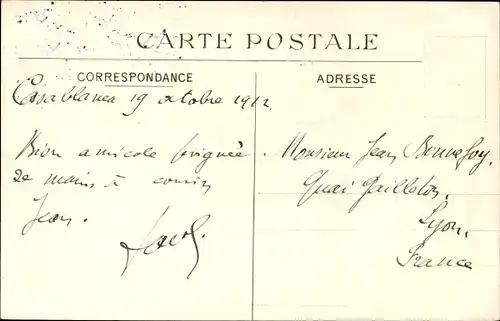 CARTE POSTALE
CORRESPONDANCE
Casablanca 19 octobre 1912
Bien amicale poignée
de mains à cousin
Jean.
ADRESSE
Monsieur Jean Bonnefoy,
Quai Gailleton,
Lyon,
France